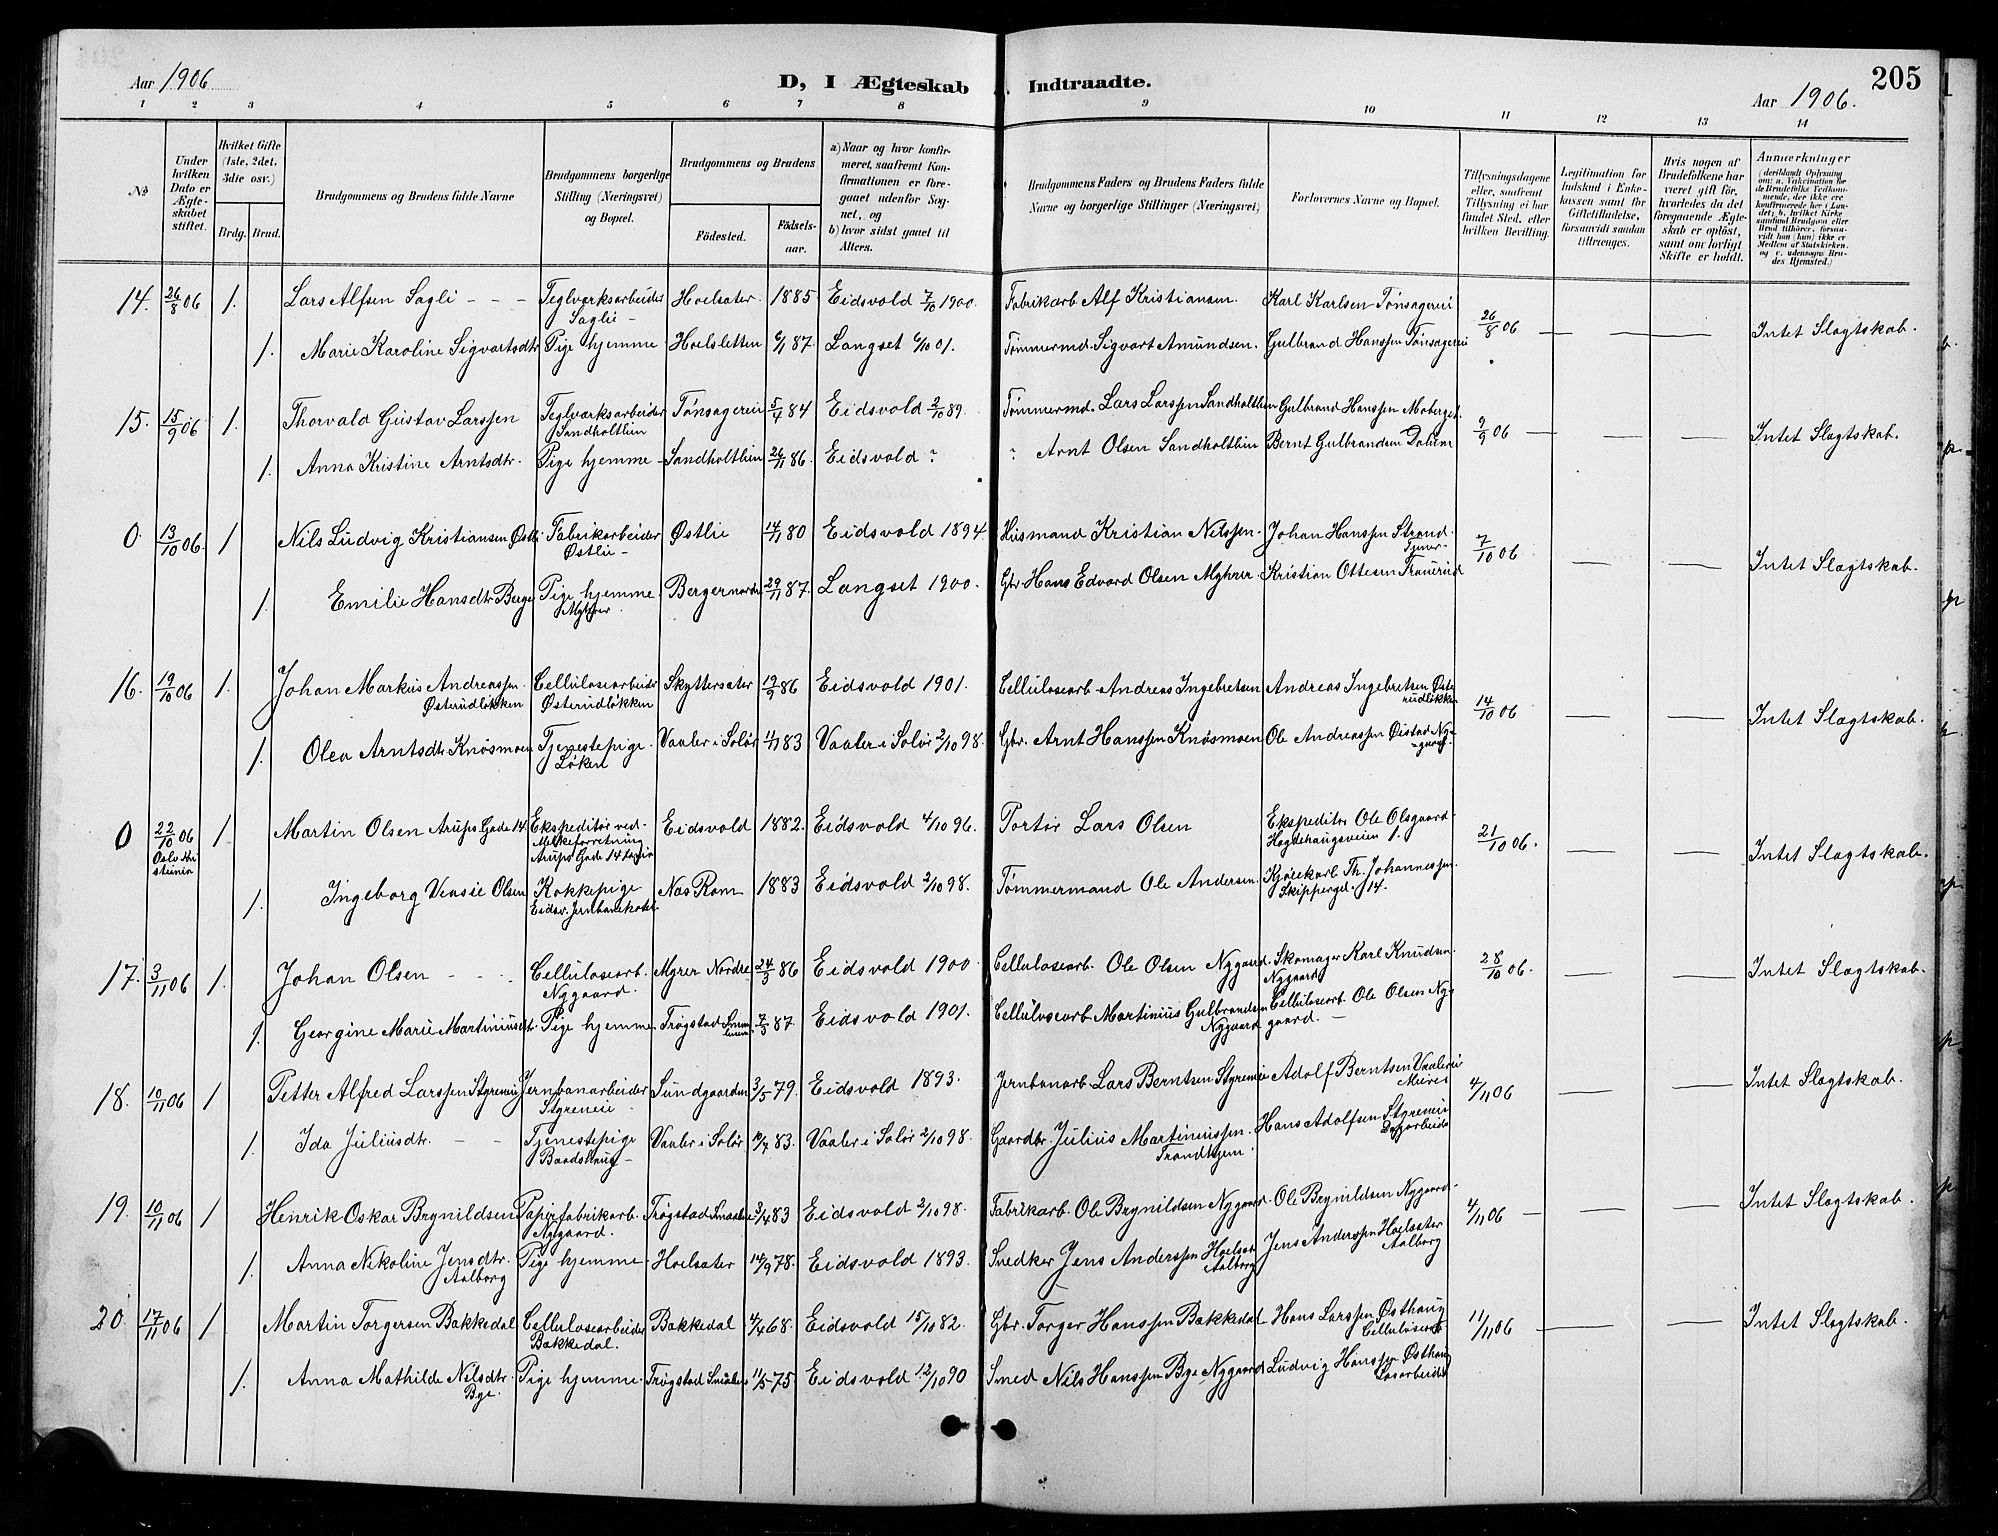 Aar 1906 D, I Ægteskab Indtraadte. Aar 1906. 205
1 2 3 4 5 6 7 8 9 10 11 12 13 14
No
Under hvilken Dato er Ægteskabet stiftet.
Hvilket Gifte (1ste, 2det, 3die osv.)
Brdg. Brud.
Brudgommens og Brudens fulde Navne
Brudgommens borgerlige Stilling (Næringsvei) og Bopæl.
Brudgommens og Brudens
Födested. Födselsaar.
a) Naar og hvor konfirmeret, saafremt Konfirmationen er foregaaet udenfor Sognet, og
b) hvor sidst gaaet til Alters.
Brudgommens Faders og Brudens Faders fulde Navne og borgerlige Stillinger (Næringsvei)
Forlovernes Navne og Bopæl.
Tillysningsdagene eller, saafremt Tillysning ei har fundet Sted, efter hvilken Bevilling.
Legitimation for Indskud i Enkekassen samt for Giftetilladelse, forsaavidt saadan tiltrænges.
Hvis nogen af Brudefolkene har været gift för, hvorledes da det foregaaende Ægteskab er oplöst, samt om lovligt Skifte er holdt.
Anmærkninger (deriblandt Oplysning om: a. Vakcination for de Brudefolks Vedkommende, der ikke ere konfirmerede her i Landet; b. hvilket Kirkesamfund Brudgom eller Brud tilhörer, forsaavidt han (hun) ikke er Medlem af Statskirken, og c. udensogns Brudes Hjemsted.)
14. 26/8 06 1. Lars Alfsen Sagli - - - Teglværksarbeider Saglie - Hoelsæter. 1885 Eidsvold 7/10 1900. Fabrikarb. Alf Kristiansen. Karl Karlsen Tønsagerei 26/8 06 — — — Intet Slægtskab.
1. Marie Karoline Sigvartsdtr Pige hjemme Hoelsletten 6/1 87. Langset 6/10 01. Tømmermd. Sigvart Amundsen. Gulbrand Hanssen Tønsagerei
15. 15/9 06 1. Thorvald Gustav Larssen Teglværksarbeider Sandholtlien Tønsagerei 5/4 84 Eidsvold 2/10 89. Tømmermd. Lars Larssen Sandholtlien Gulbrand Hanssen Moberget. 9/9 06 — — — Intet Slægtskab.
1. Anna Kristine Arntsdtr. Pige hjemme - Sandholtlien 26/11 86. Eidsvold ? " Arnt Olsen Sandholtlien Bernt Gulbrandsen Dalum
0. 13/10 06. 1 Nils Ludvig Kristiansen Østli. Fabrikarbeider Østlie - Østlie 14/11 80 Eidsvold 1894 Husmand Kristian Nilssen. Johan Hanssen Strand. 7/10 06 — — Intet Slægtskab.
1. Emilie Hansdtr Berge Pige hjemme Myhrer. Bergernordre 29/11 87. Langset 1900. Gbr. Hans Edvard Olsen Myhrer. Kristian Ottesen Trauerud
16. 19/10 06 1. Johan Markus Andreassen. Østerudløkken Cellulosearbeider Østerudløkken Skyttersæter 19/9 86 Eidsvold 1901. Cellulosearb. Andreas Ingebretsen Andreas Ingebretsen Østerudløkken 14/10 06 — — Intet Slægtskab.
1. Olea Arntsdtr Knøsmoen Tjenestepige. Løken Vaaler i Solør 1/1 83 Vaaler i Solør 2/10 98. Gbr. Arnt Hanssen Knøsmoen Ole Andreassen Øistad Nygaard.
0 22/10 06 Oslo Kristiania 1 Martin Olsen Arups Gade 14. Ekspeditør ved Melkeforretning Arups Gade 14 Eidsvold 1882. Eidsvold 4/10 96. Portør Lars Olsen Ekspeditør Ole Olsgaard. Hægdehaugsveien 1. 21/10 06. — — Intet Slægtskab.
1. Ingeborg Vensie Olsen Kokkepige Eidsv. Jernbanehotel. Næs Rom. 1883 Eidsvold 2/10 98. Tømmermand Ole Andersen. Kjørekarl Th. Johannessen. Skippergd. 14.
17. 3/11 06 1. Johan Olsen - - - Cellulosearb. Nygaard. Myrer Nordre 24/3 86 Eidsvold 1900 Cellulosearb. Ole Olsen Nygaard. Skomager Karl Knudsen. Nygaard 28/10 06. — — Intet Slægtskab.
1. Georgine Marie Martiniusdtr. Pige hjemme Trøgstad 7/3 87 Eidsvold 1901. Cellulosearb. Martinius Gulbrandsen Nygaard Cellulosearb. Ole Olsen Nygaard. —
18. 10/11 06 1 Petter Alfred Larssen Styrerei Jernbanarbeider Styrereie - Sundgaarden 3/5 79 Eidsvold 1893. Jernbanarb. Lars Berntsen Styrereie Adolf Berntsen Vaalerei Murer 4/11 06 — — Intet Slægtskab.
1. Ida Juliusdtr. - - Tjenestepige Baadshaug - Vaaler i Solør 10/7 83. Vaaler i Solør 2/10 98. Gaardbr. Julius Martinussen. Trondhjem Hans Adolfsen Styrerei Dagarbeider
19. 10/11 06 1 Henrik Oskar Brynildsen Papirfabrikarb. Nygaard. Trøgstad Smaalene 3/4 83 Eidsvold 2/10 98. Fabrikarb. Ole Brynildsen Nygaard. Ole Brynildsen Nygaard. 4/11 06 — — — Intet Slægtskab.
1. Anna Nikoline Jensdtr. Aalborg Pige hjemme - Hoelsæter 14/9 78. Eidsvold 1893. Snedker Jens Anderssen Hoelsæt Aalborg Jens Anderssen Hoelsæter Aalborg
20. 17/11 06 1 Martin Torgersen Bakkedal Cellulosearbeider Bakkedal. Bakkedal 4/4 68. Eidsvold 15/10 82. Gbr. Torger Hanssen Bakkedal Hans Larssen Østhaug Cellulosearb. 11/11 06 — — Intet Slægtskab.
1. Anna Mathilde Nilsdtr. Bye. Pige hjemme. Trøgstad Smaalen 11/5 75 Eidsvold 12/10 90 Smed Nils Hanssen Bye Nygaard Ludvig Hanssen Østhaug Løsarbeider